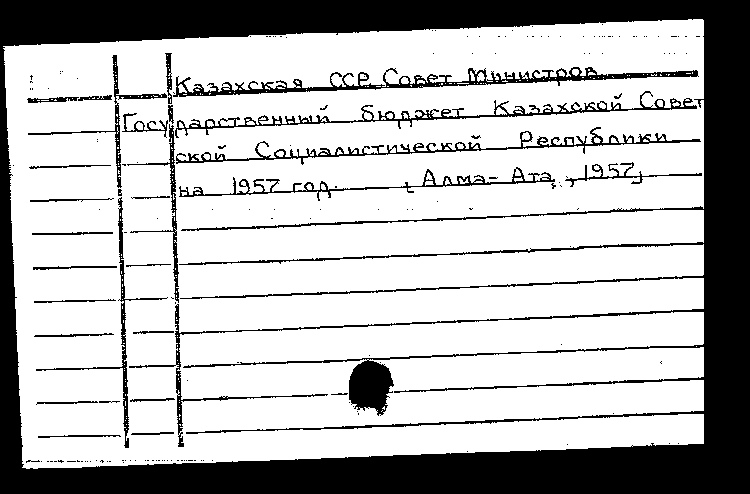 Казахская ССР. Совет Министров
Государственный бюджет Казахской Совет
ской Социалистической Республики
на 1957 год. [Алма-Ата, 1957]